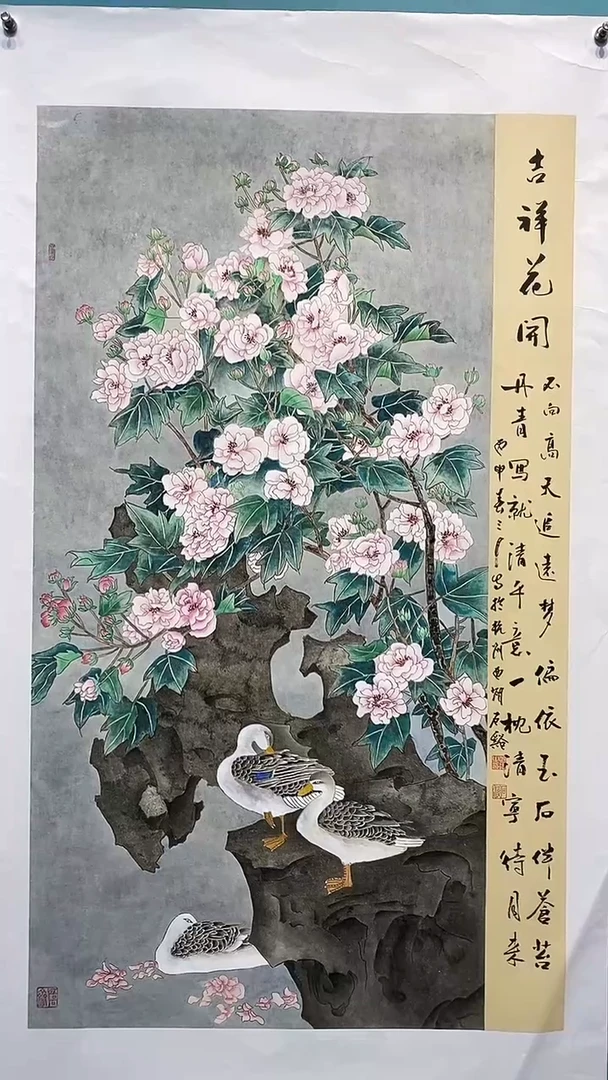 吉祥花開
不向高天追遠梦 偏依玉石伴蒼苔
丹青寫就清平意 一枕清寧待月来
丙申春三月写於杭州西湖石谿